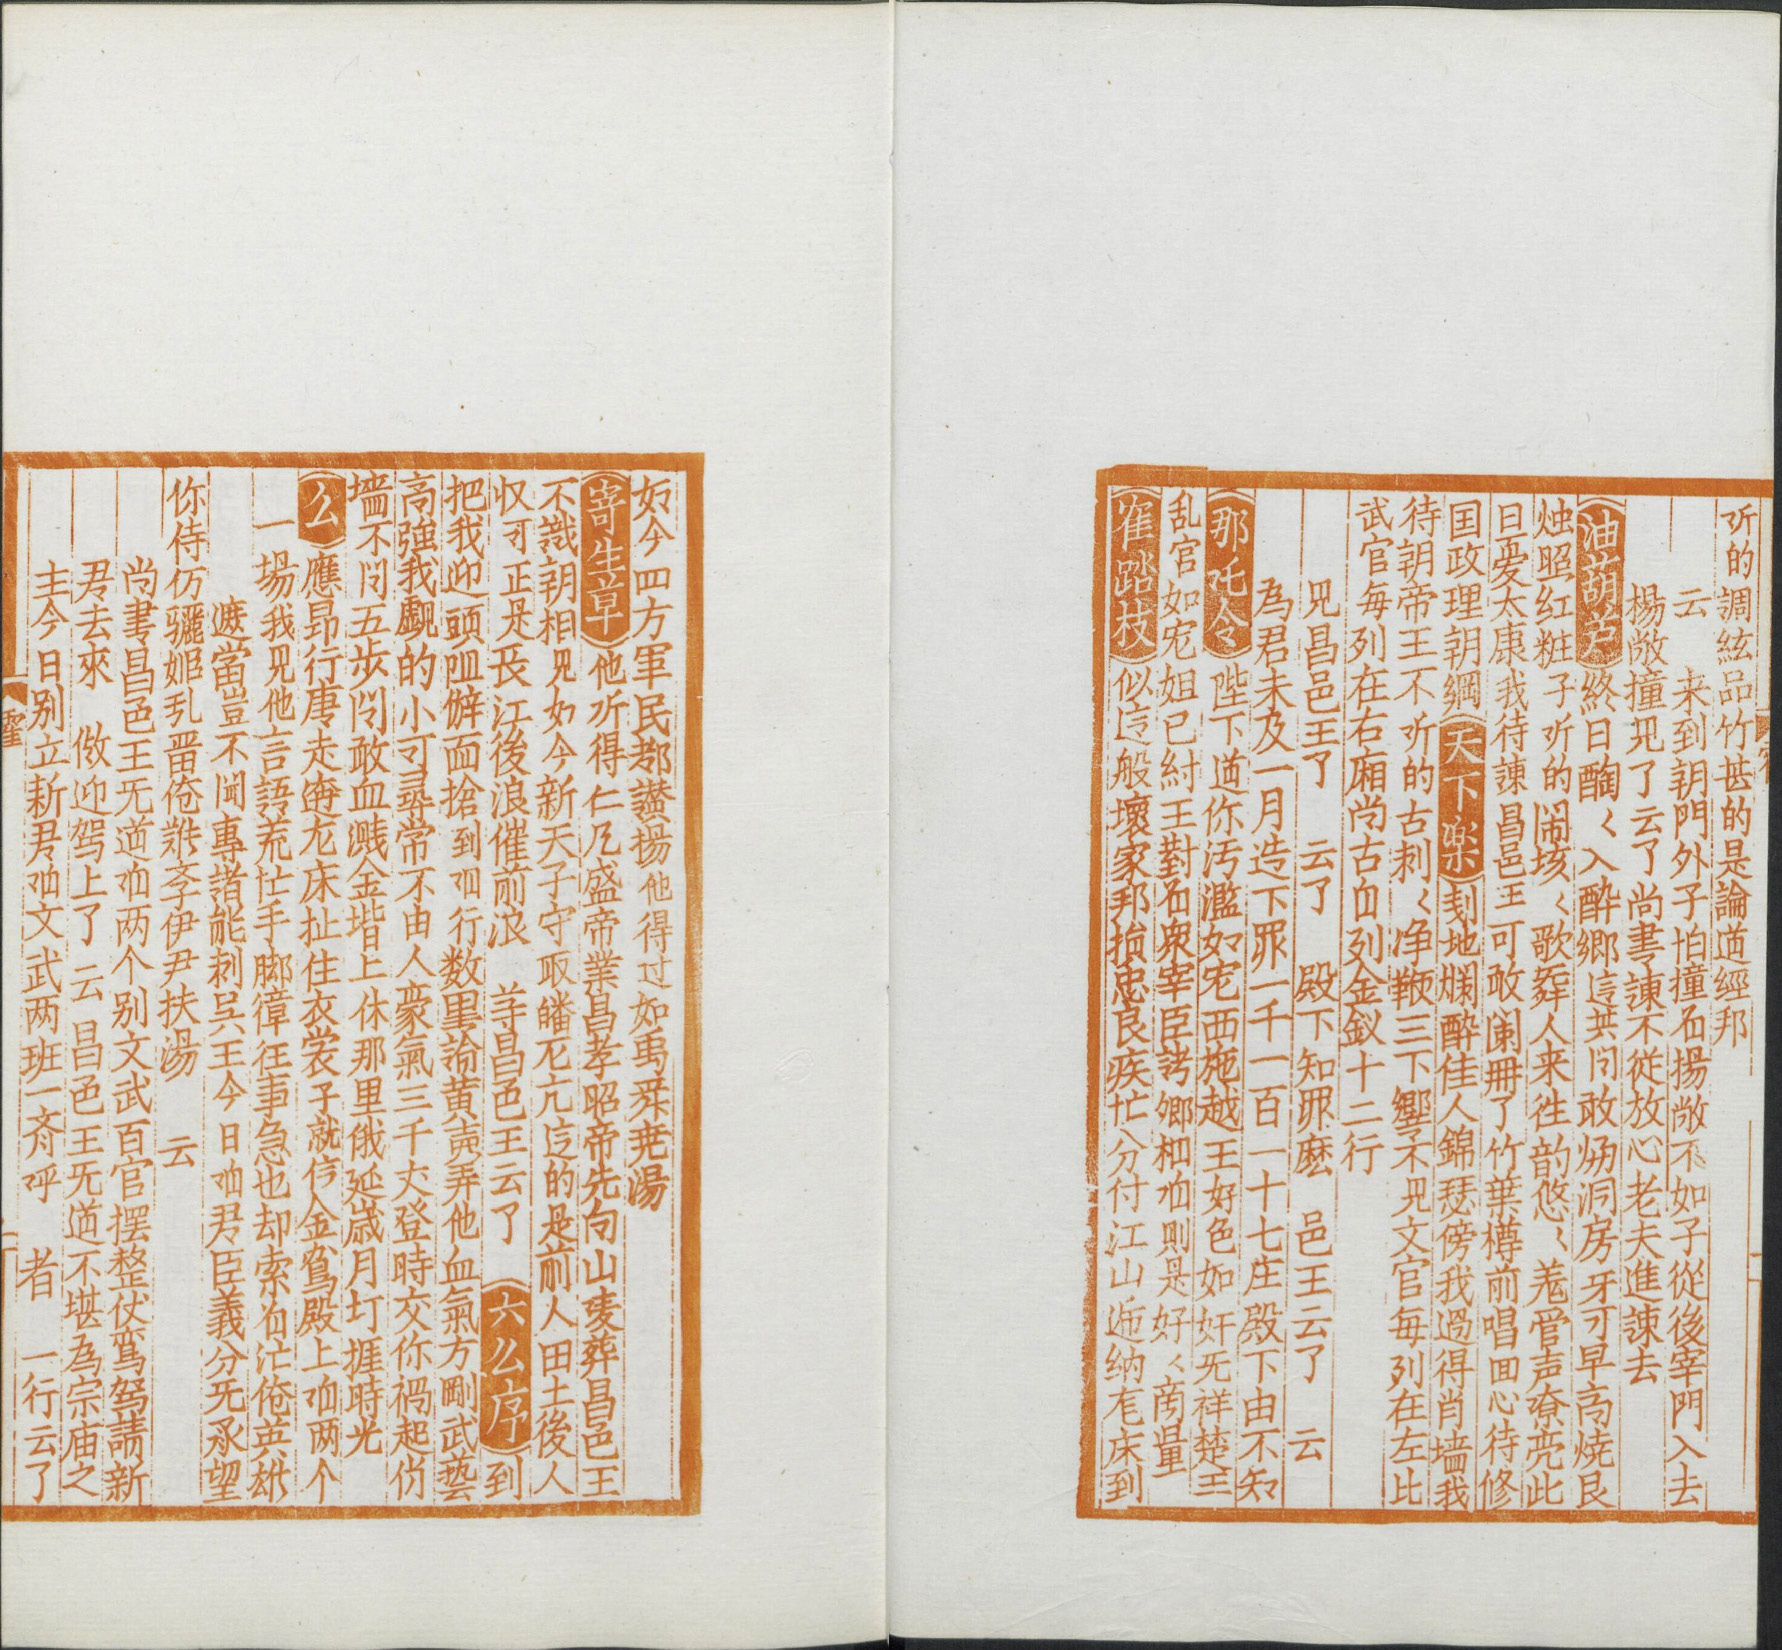 所的調絃品竹甚的是論道經邦
云　来到朝門外子怕撞着揚敞不如子從後宰門入去
楊敞撞見了云了尚書諫不從放心老夫進諫去
油葫芦 終日醄〱入酔郷這其间敢㶽洞房牙可早高燒艮
烛照红粧子听的閙垓〱歌舞人来徃韵悠〻羗管声嘹亮此
日愛太康我待諫昌邑王可敢闌冊了竹葉樽前唱囬心待修
囯政理朝綱 天下楽 刬地爛酔佳人錦瑟傍我過得肖墻我
待朝帝王不听的古刺〱净鞭三下響不見文官每列在左比
武官每列在右廂尚古自列金釵十二行
見昌邑王了　云了　殿下知罪麽　邑王云了　云
為君未及一月造下罪一千一百一十七庄殿下由不知
那吒令 陛下道你污濫如宅西施越王好色如奸无祥楚王
乱宫如宅妲已紂王對着衆宰臣諸郷相咱則是好〻商量
寉踏枝 似這般壞家邦損忠良疾忙分付江山迊纳竜床到
如今四方軍民都讚揚他得过如禹舜尭湯
寄生草 他听得仁凢盛帝業昌孝昭帝先向山陵葬昌邑王
不識朝相見如今新天子守取皤不亢這的是前人田土後人
収可正是長江後浪催前浪　等昌邑王云了　六么序 到
把我迎頭阻僻面搶到咱行数黒論黄卖弄他血氣方剛武藝
高強我覷的小可尋常不由人豪氣三千丈登時交你禍起肖
墻不问五步间敢血濺金堦上休那里俄延歲月打捱時光
么 應昻行唐走奔龙床扯住衣裳子就信金鴛殿上咱两个
一場我見他言語荒忙手脚獐狂事急也却索着忙倦英雄
遮當豈不闻專諸能刺吴王今日咱君臣義分无承望
你侍仿驪姬乱晋倦誰斈伊尹扶湯　云
尚書昌邑王无道咱两个别文武百官擺整仗鸞駕請新
君去來　做迎驾上了　云昌邑王旡道不堪為宗庙之
主今日别立新君咱文武两班一斉呼　者　一行云了